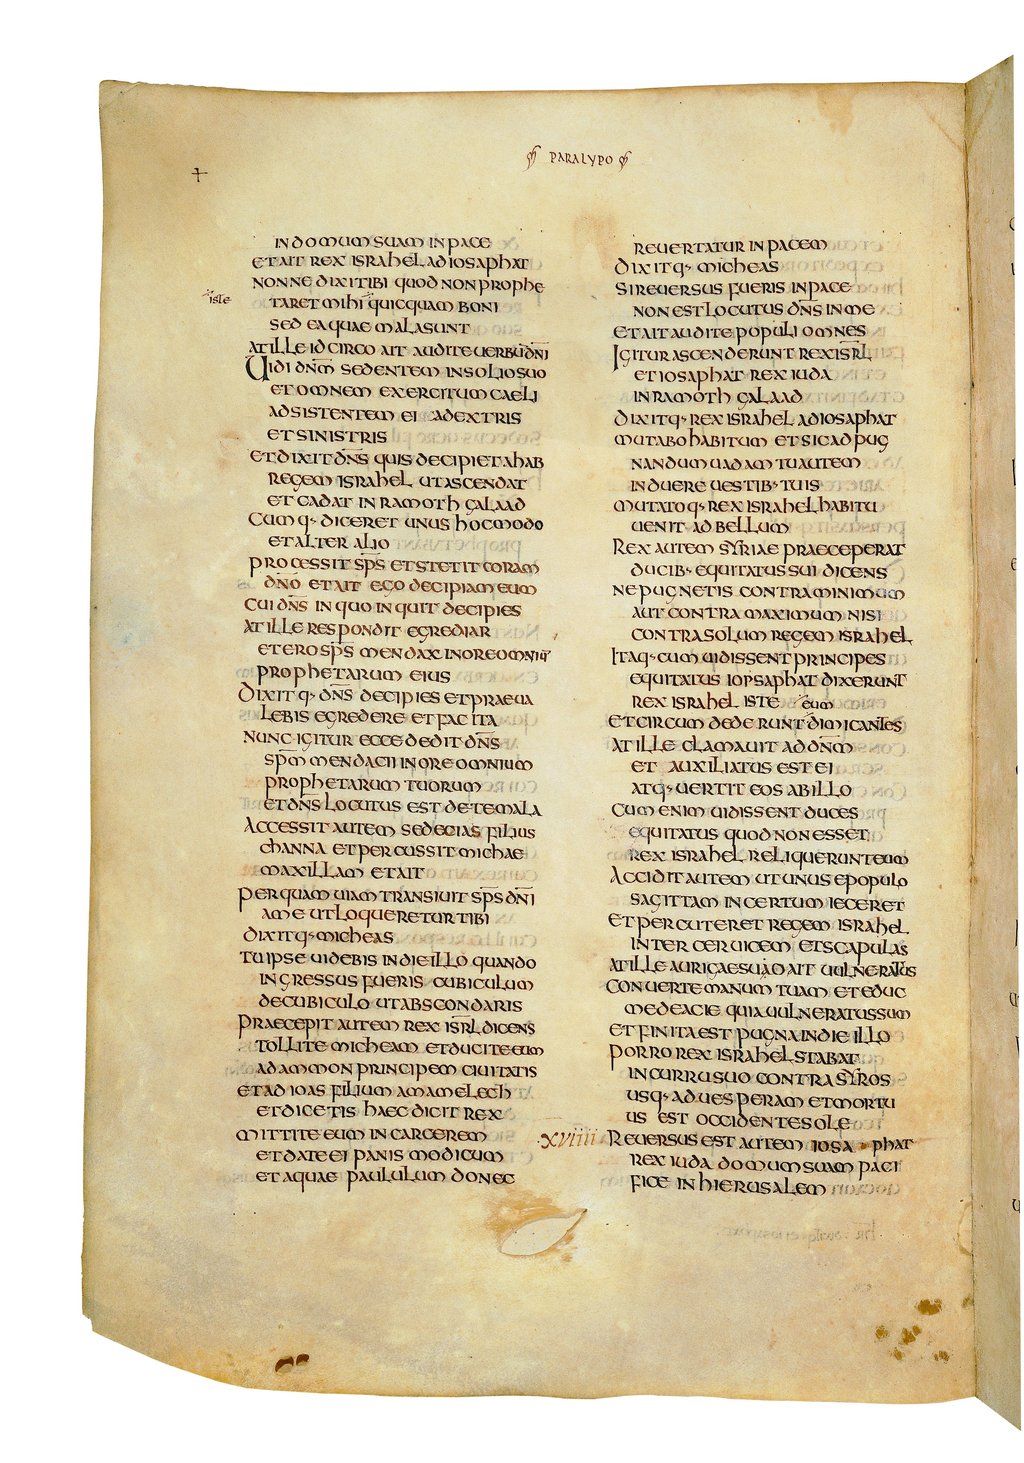 PARALYPO
IN DOMUM SUAM IN PACE
ET AIT REX ISRAHEL AD IOSAPHAT
NONNE DIXI TIBI QUOD NON PROPHE
iste
TARET MIHI QUICQUAM BONI
SED EA QUAE MALA SUNT
AT ILLE IDCIRCO AIT AUDITE UERBŪ DN̄I
UIDI DN̄M SEDENTEM IN SOLIO SUO
ET OMNEM EXERCITUM CAELI
ADSISTENTEM EI A DEXTRIS
ET SINISTRIS
ET DIXIT DN̄S QUIS DECIPIET AHAB
REGEM ISRAHEL UT ASCENDAT
ET CADAT IN RAMOTH GALAAD
CUMQ· DICERET UNUS HOC MODO
ET ALTER ALIO
PROCESSIT SP̄S ET STETIT CORAM
DN̄O ET AIT EGO DECIPIAM EUM
CUI DN̄S IN QUO INQUIT DECIPIES
AT ILLE RESPONDIT EGREDIAR
ET ERO SP̄S MENDAX IN ORE OMNIŪ
PROPHETARUM EIUS
DIXITQ· DN̄S DECIPIES ET PRAEUA
LEBIS EGREDERE ET FAC ITA
NUNC IGITUR ECCE DEDIT DN̄S
SP̄M MENDACII IN ORE OMNIUM
PROPHETARUM TUORUM
ET DN̄S LOCUTUS EST DE TE MALA
ACCESSIT AUTEM SEDECIAS FILIUS
CHANNA ET PERCUSSIT MICHAE
MAXILLAM ET AIT
PER QUAM UIAM TRANSIUIT SP̄S DN̄I
A ME UT LOQUERETUR TIBI
DIXITQ· MICHEAS
TU IPSE UIDEBIS IN DIE ILLO QUANDO
INGRESSUS FUERIS CUBICULUM
DE CUBICULO UT ABSCONDARIS
PRAECEPIT AUTEM REX ISR̄L DICENS
TOLLITE MICHEAM ET DUCITE EUM
AD AMMON PRINCIPEM CIUITATIS
ET AD IOAS FILIUM AMAMELECH
ET DICETIS HAEC DICIT REX
MITTITE EUM IN CARCEREM
ET DATE EI PANIS MODICUM
ET AQUAE PAULULUM DONEC
REUERTATUR IN PACEM
DIXITQ· MICHEAS
SI REUERSUS FUERIS IN PACE
NON EST LOCUTUS DN̄S IN ME
ET AIT AUDITE POPULI OMNES
IGITUR ASCENDERUNT REX ISR̄L
ET IOSAPHAT REX IUDA
IN RAMOTH GALAAD
DIXITQ· REX ISRAHEL AD IOSAPHAT
MUTABO HABITUM ET SIC AD PUG
NANDUM UADAM TU AUTEM
INDUERE UESTIB· TUIS
MUTATOQ· REX ISRAHEL HABITU
UENIT AD BELLUM
REX AUTEM SYRIAE PRAECEPERAT
DUCIB· EQUITATUS SUI DICENS
NE PUGNETIS CONTRA MINIMUM
AUT CONTRA MAXIMUM NISI
CONTRA SOLUM REGEM ISRAHEL
ITAQ· CUM UIDISSENT PRINCIPES
EQUITATUS IOSAPHAT DIXERUNT
REX ISRAHEL ISTE
eum
ET CIRCUMDEDERUNT DIMICANTES
AT ILLE CLAMAUIT AD DN̄M
ET AUXILIATUS EST EI
ATQ· UERTIT EOS AB ILLO
CUM ENIM UIDISSENT DUCES
EQUITATUS QUOD NON ESSET
REX ISRAHEL RELIQUERUNT EUM
ACCIDIT AUTEM UT UNUS E POPULO
SAGITTAM IN CERTUM IECERET
ET PERCUTERET REGEM ISRAHEL
INTER CERUICEM ET SCAPULAS
AT ILLE AURIGAE SUAO AIT UULNERATUS
CONUERTE MANUM TUAM ET EDUC
ME DE ACIE QUIA UULNERATUS SUM
ET FINITA EST PUGNA IN DIE ILLO
PORRO REX ISRAHEL STABAT
IN CURRU SUO CONTRA SYROS
USQ· AD UESPERAM ET MORTU
US EST OCCIDENTE SOLE
·XVIIII REUERSUS EST AUTEM IOSAPHAT
REX IUDA DOMUM SUAM PACI
FICE IN HIERUSALEM